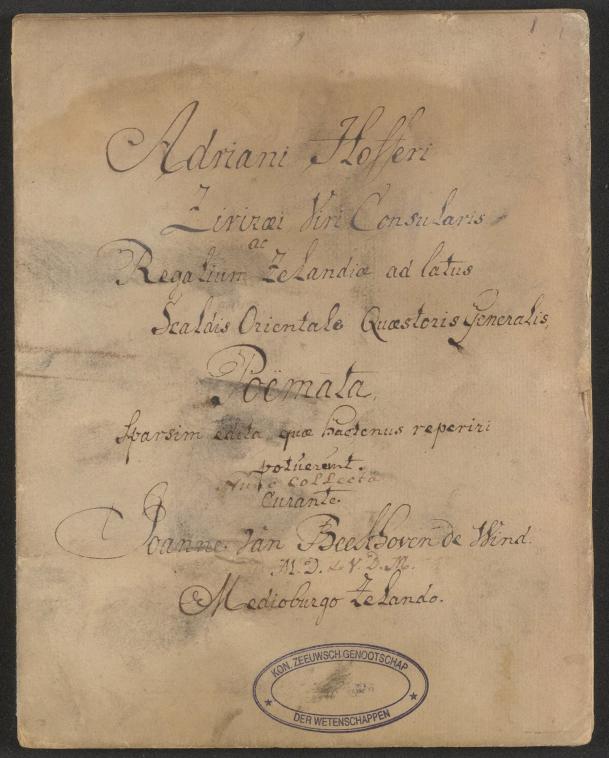 Adriani Hofferi
Zirizæi Viri Consularis
ac
Regalium Zelandiæ ad latus
Scaldis Orientale Quæstoris Generalis,
Poëmata,
Sparsim edita, quæ hactenus reperiri
potuerunt.
Nunc collecta
Curante.
Joanne. Van Beekhoven de Wind.
M.D. & V.D.M.
Medioburgo Zelando.
KON. ZEEUWSCH GENOOTSCHAP
DER WETENSCHAPPEN